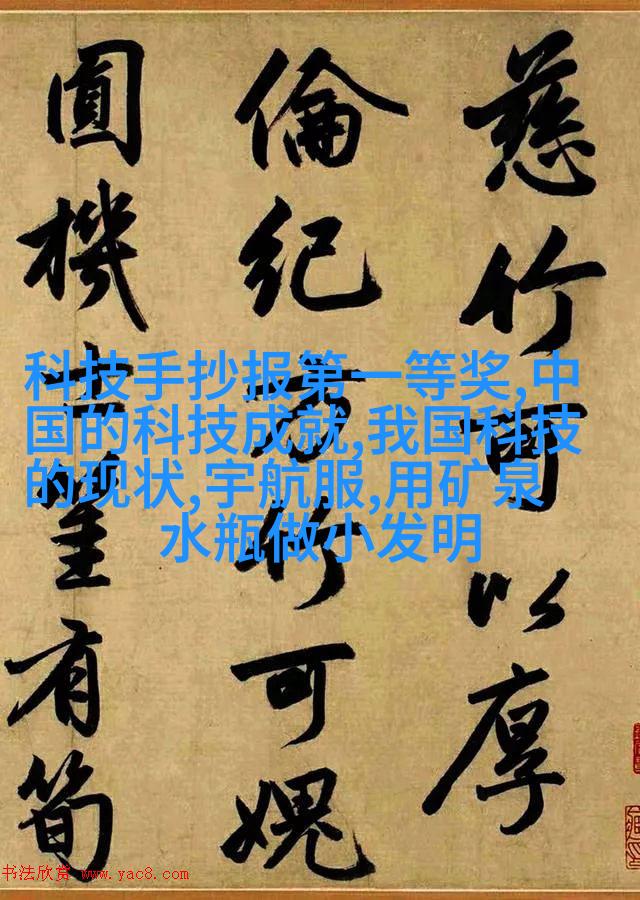 慈竹可以厚
倫紀方竹可媿
圓機士筀有筍
科技手抄报第一等奖,中
国的科技成就,我国科技
的现状,宇航服,用矿泉
水瓶做小发明
书法欣赏 www.yac8.com